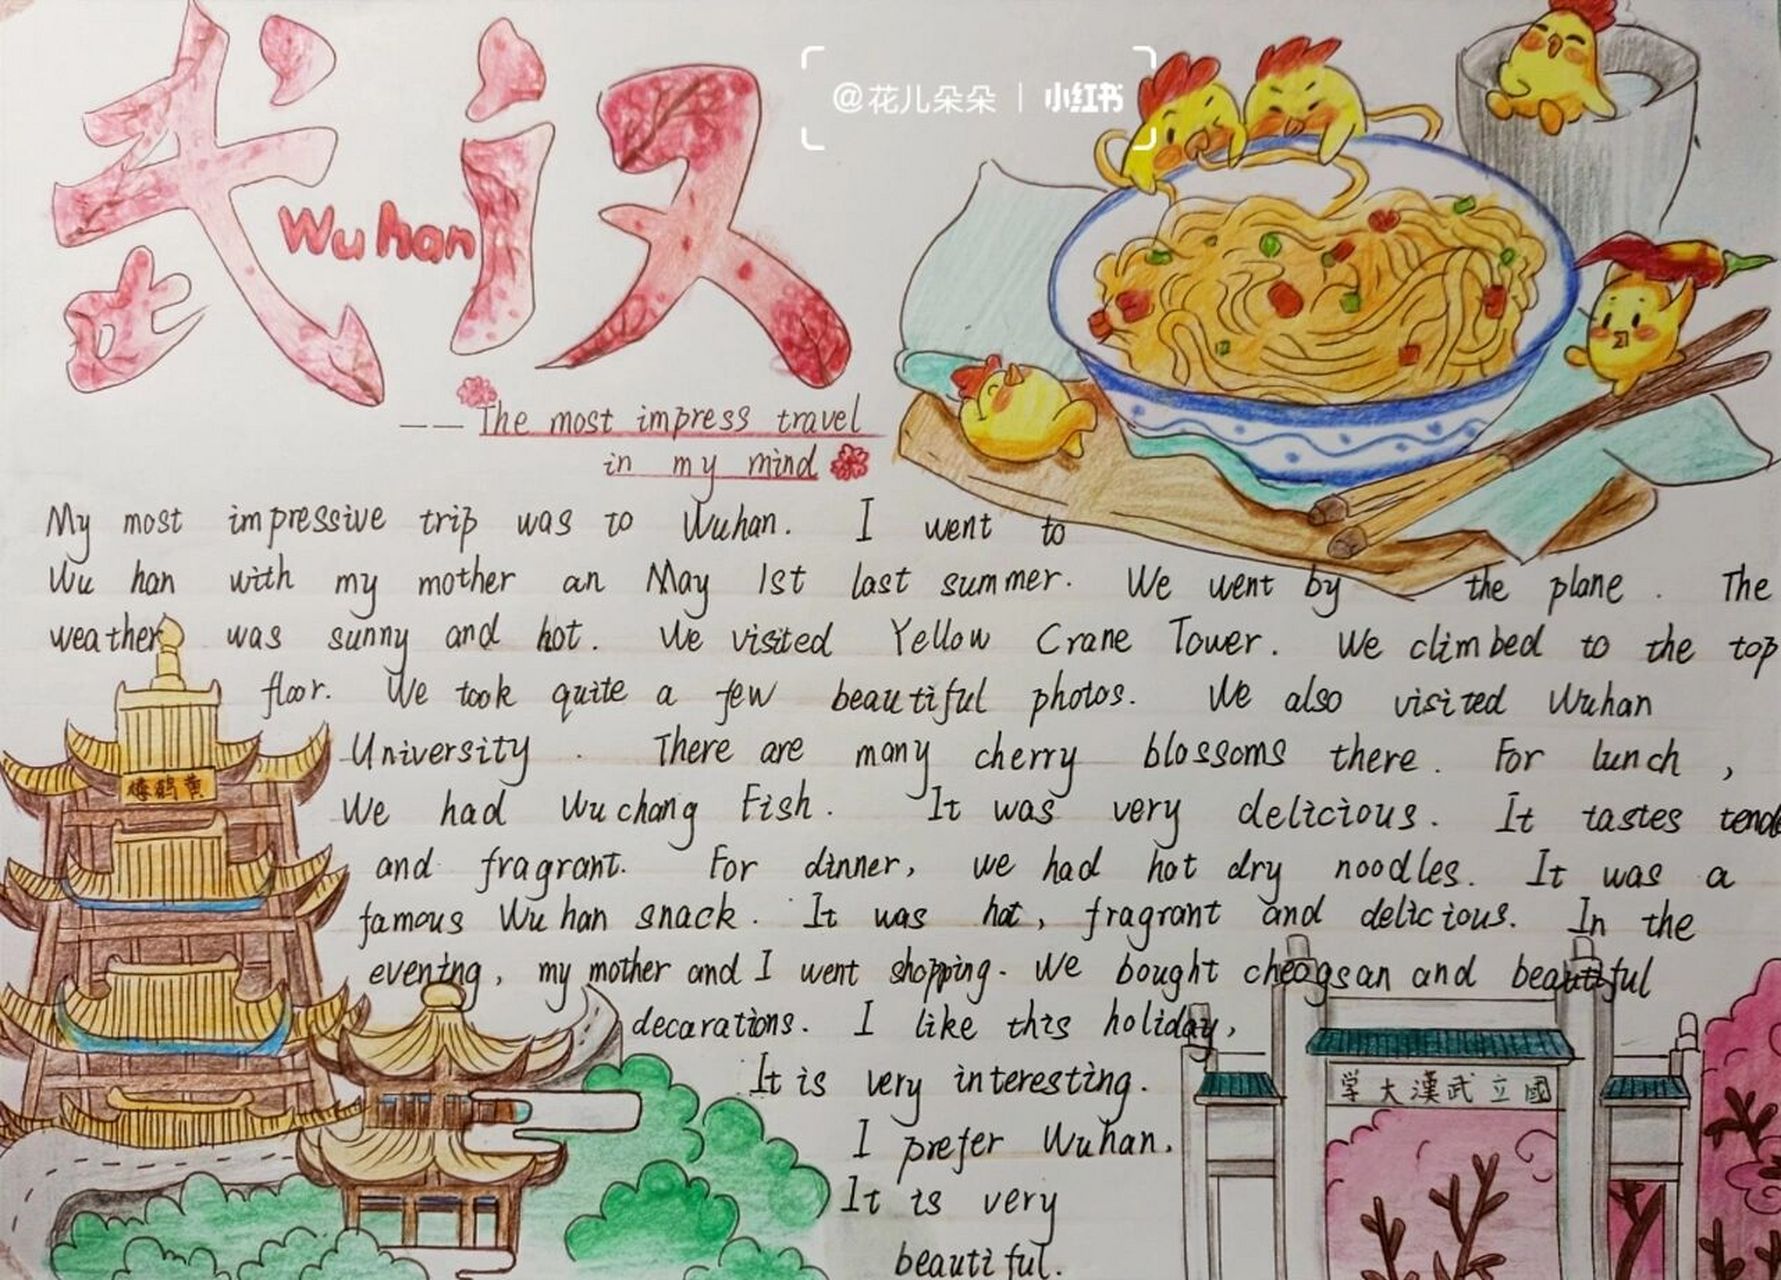 武汉
Wuhan
@花儿朵朵 | 小红书
——The most impress travel
in my mind
My most impressive trip was to Wuhan. I went to
Wu han with my mother an May 1st last summer. We went by the plane. The
weather was sunny and hot. We visited Yellow Crane Tower. We climbed to the top
floor. We took quite a few beautiful photos. We also visited Wuhan
University. There are many cherry blossoms there. For lunch,
We had Wuchang Fish. It was very delicious. It tastes tende
and fragrant. For dinner, we had hot dry noodles. It was a
famous Wuhan snack. It was hot, fragrant and delicious. In the
evening, my mother and I went shopping. We bought cheogsan and beautiful
decarations. I like this holiday,
It is very interesting.
I prefer Wuhan.
It is very
beautiful.
樓鶴黃
學大漢武立國